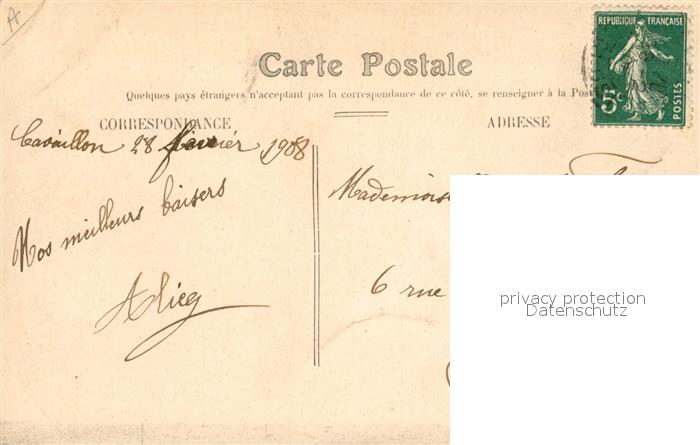 A
REPUBLIQUE FRANÇAISE
5c
POSTES
Carte Postale
Quelques pays étrangers n'acceptant pas la correspondance de ce côté, se renseigner à la Post
CORRESPONDANCE
ADRESSE
Cavaillon 28 février 1908
Mademois
Nos meilleurs baisers
6 rue
privacy protection
Datenschutz